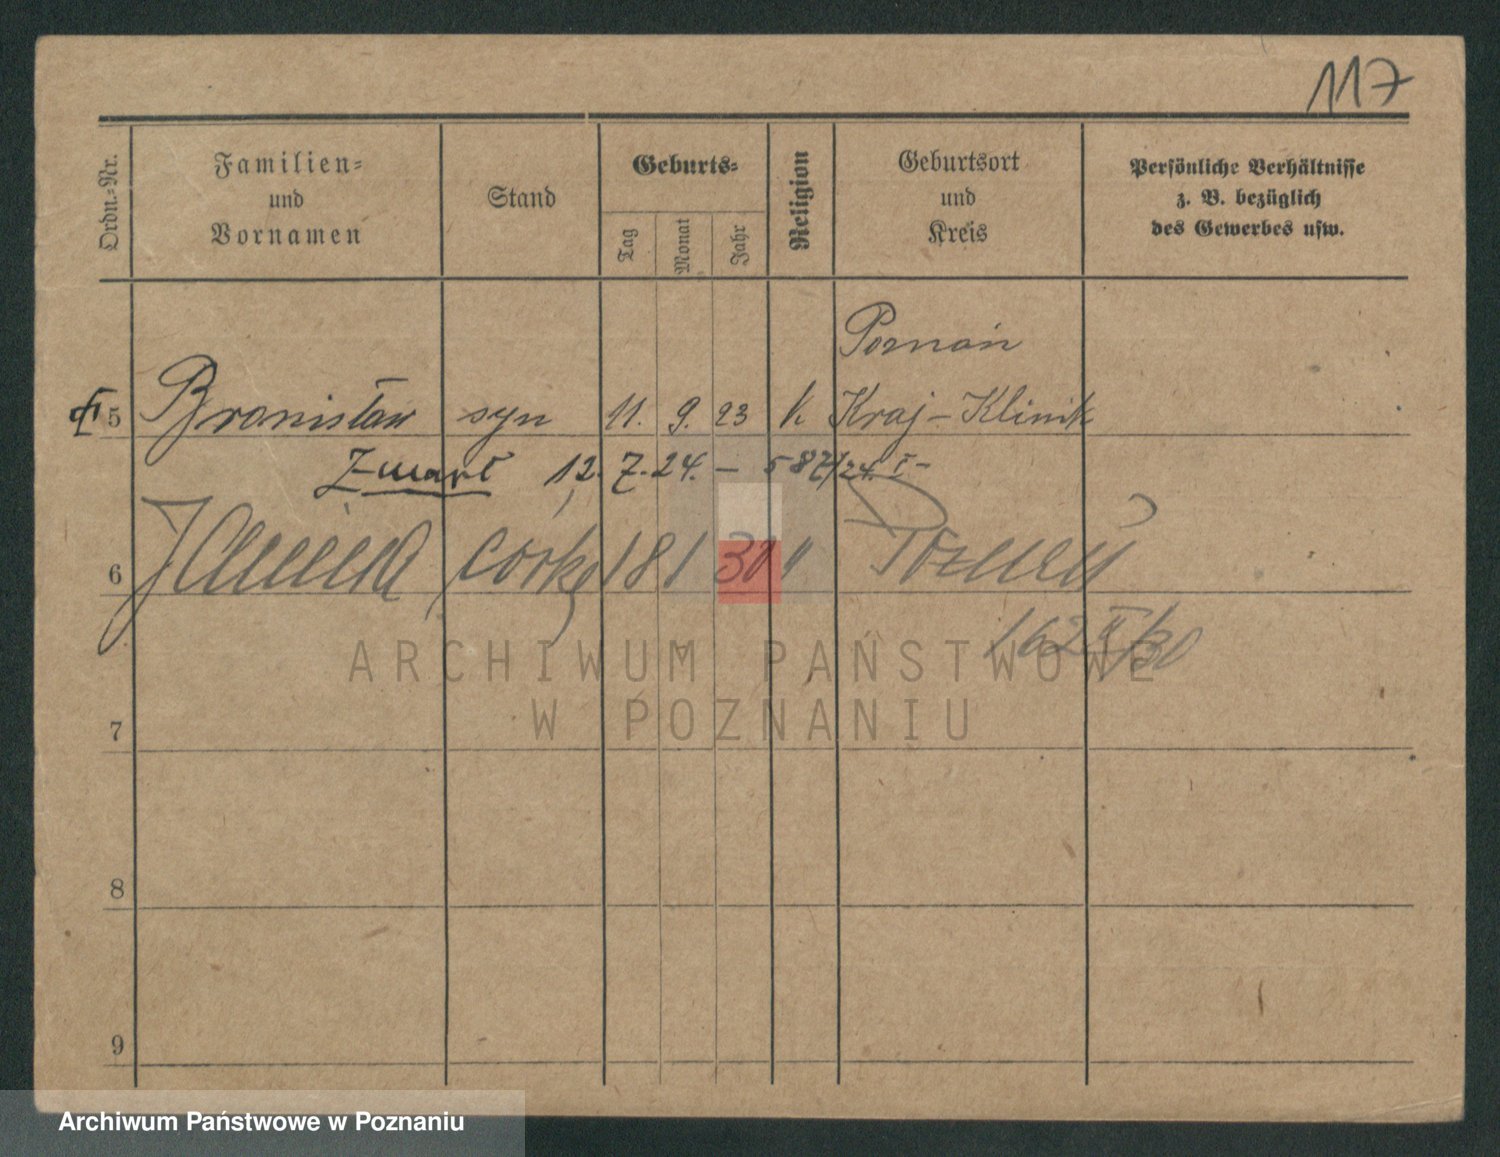 117
Ordn.-Nr.
Familien-
und
Vornamen
Stand
Geburts-
Tag
Monat
Jahr
Religion
Geburtsort
und
Kreis
Persönliche Verhältnisse
z. B. bezüglich
des Gewerbes usw.
Poznań
5 Bronisław syn 11. 9. 23 k Kraj-Klinik
Zmarł 12. 7. 24. — 587/24. I-
6 Janina córka 18 1 30 " Poznań
162 II/30
ARCHIWUM PAŃSTWOWE
W POZNANIU
7
8
9
Archiwum Państwowe w Poznaniu